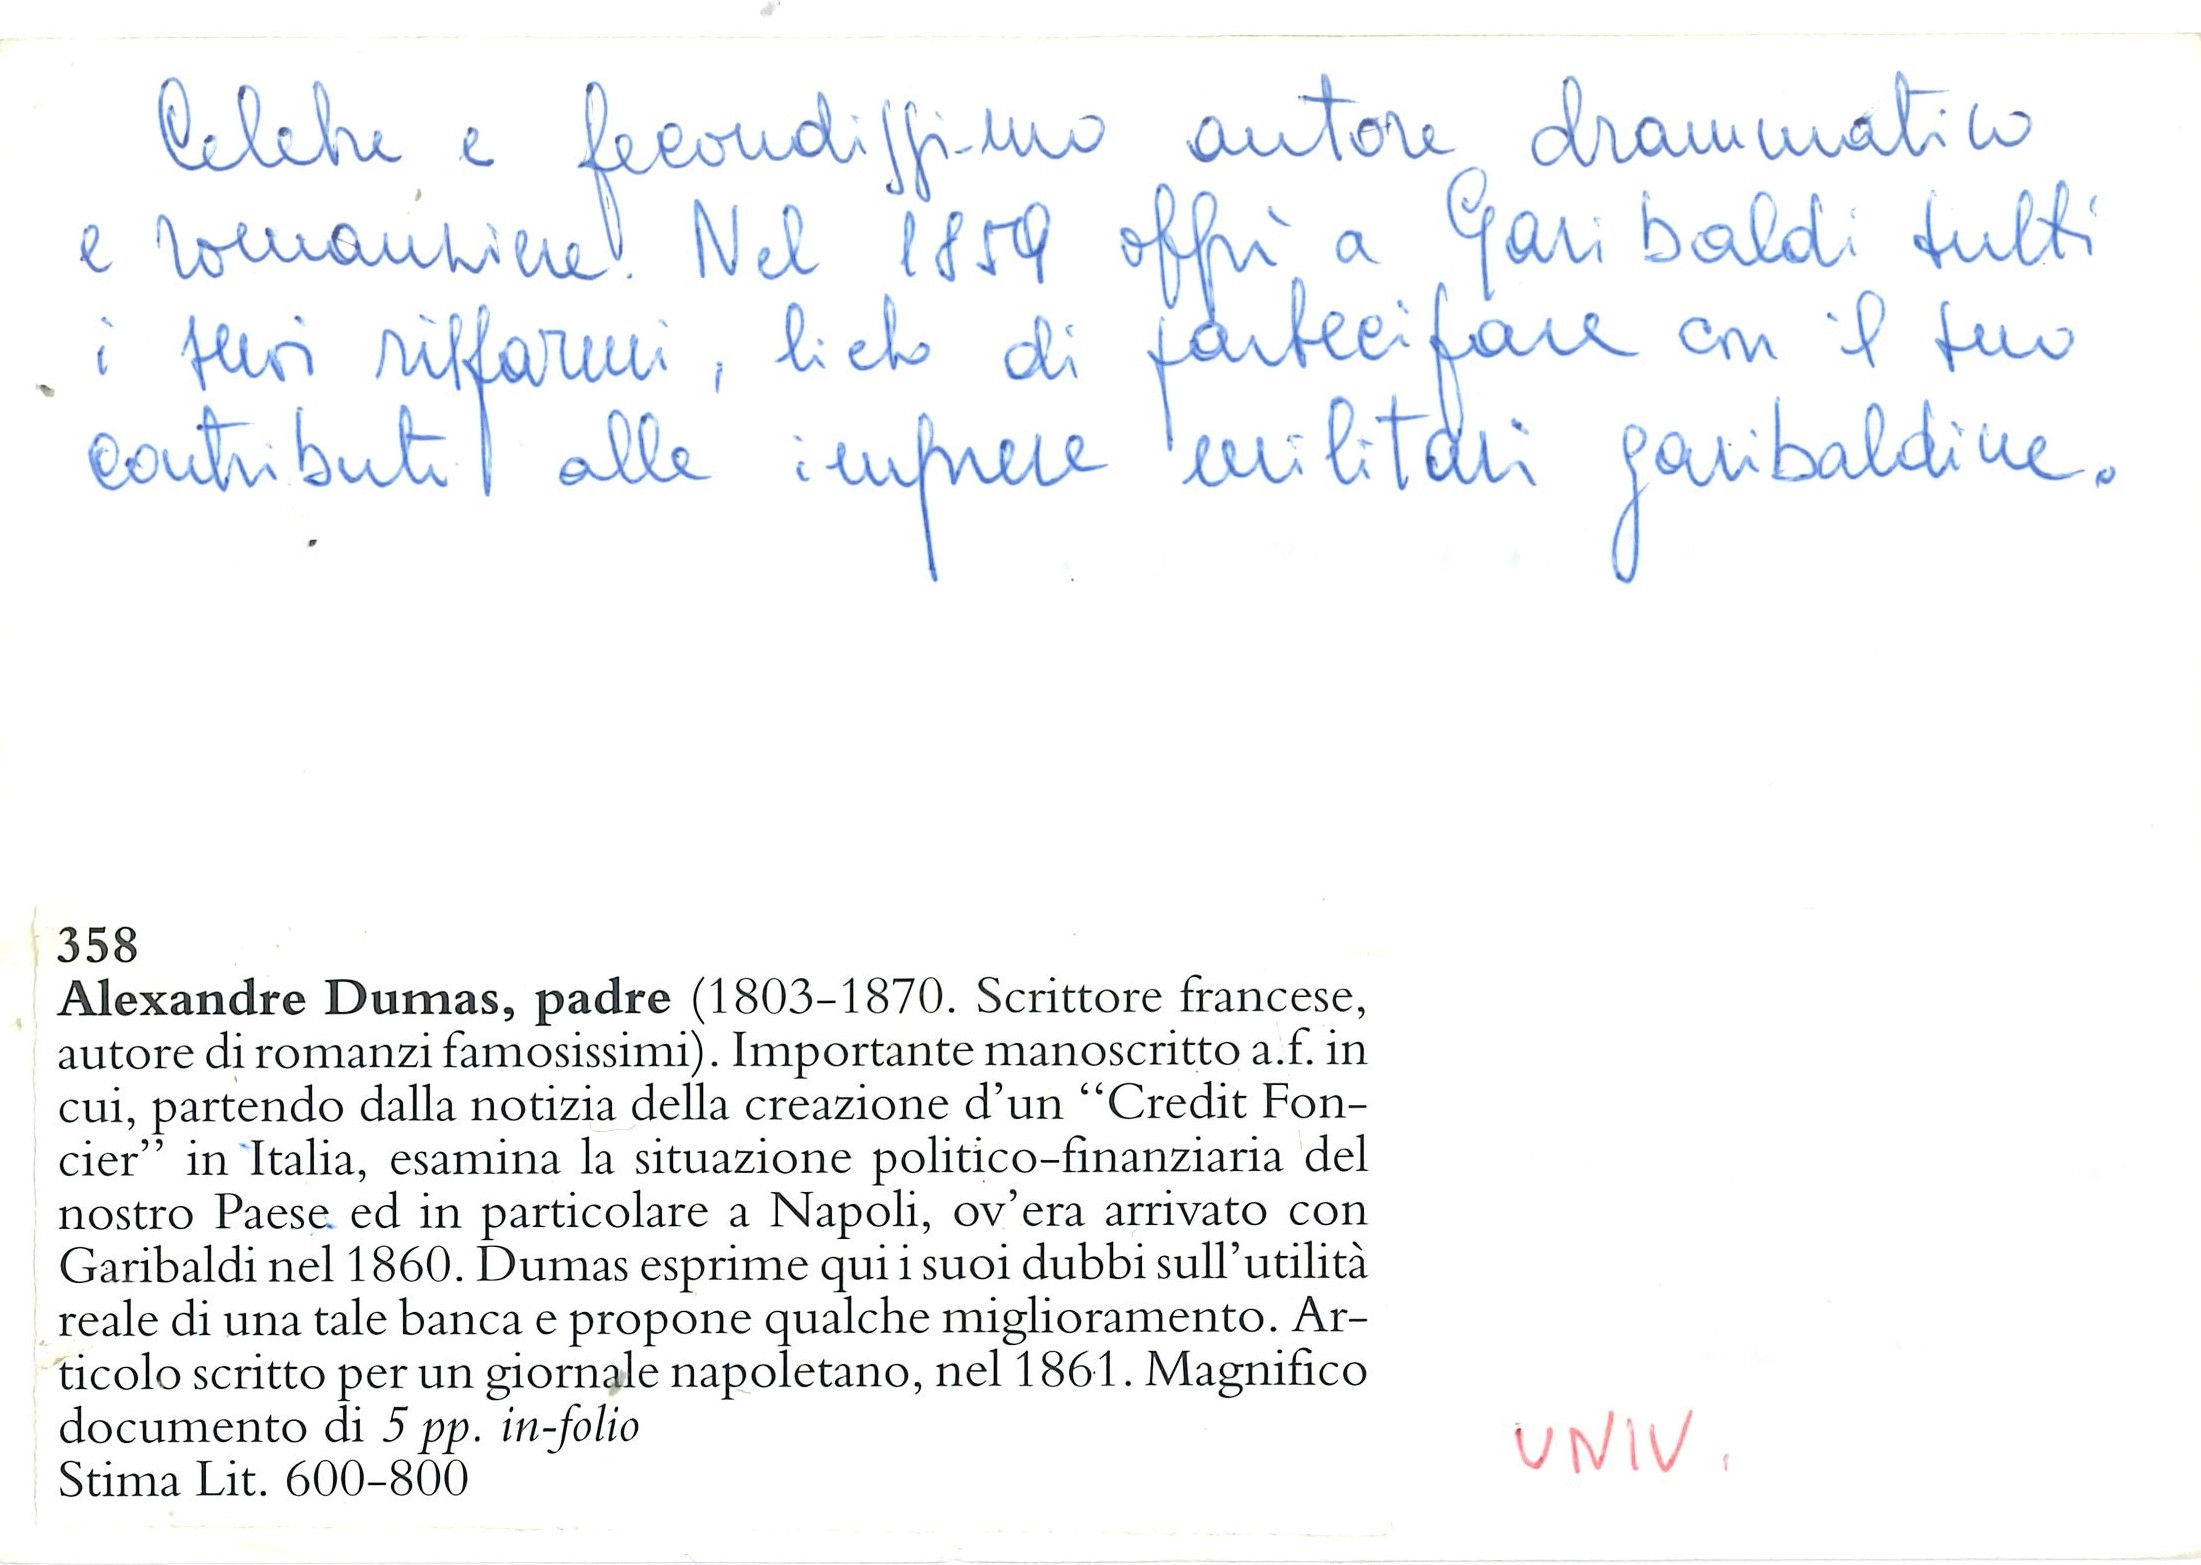 Celebre e fecondissimo autore drammatico
e romanziere. Nel 1859 offrì a Garibaldi tutti
i suoi risparmi, lieto di partecipare con il suo
contributo alle imprese militari garibaldine.
358
Alexandre Dumas, padre (1803-1870. Scrittore francese,
autore di romanzi famosissimi). Importante manoscritto a.f. in
cui, partendo dalla notizia della creazione d'un “Credit Fon-
cier” in Italia, esamina la situazione politico-finanziaria del
nostro Paese ed in particolare a Napoli, ov'era arrivato con
Garibaldi nel 1860. Dumas esprime qui i suoi dubbi sull'utilità
reale di una tale banca e propone qualche miglioramento. Ar-
ticolo scritto per un giornale napoletano, nel 1861. Magnifico
documento di 5 pp. in-folio
Stima Lit. 600-800
UNIV.